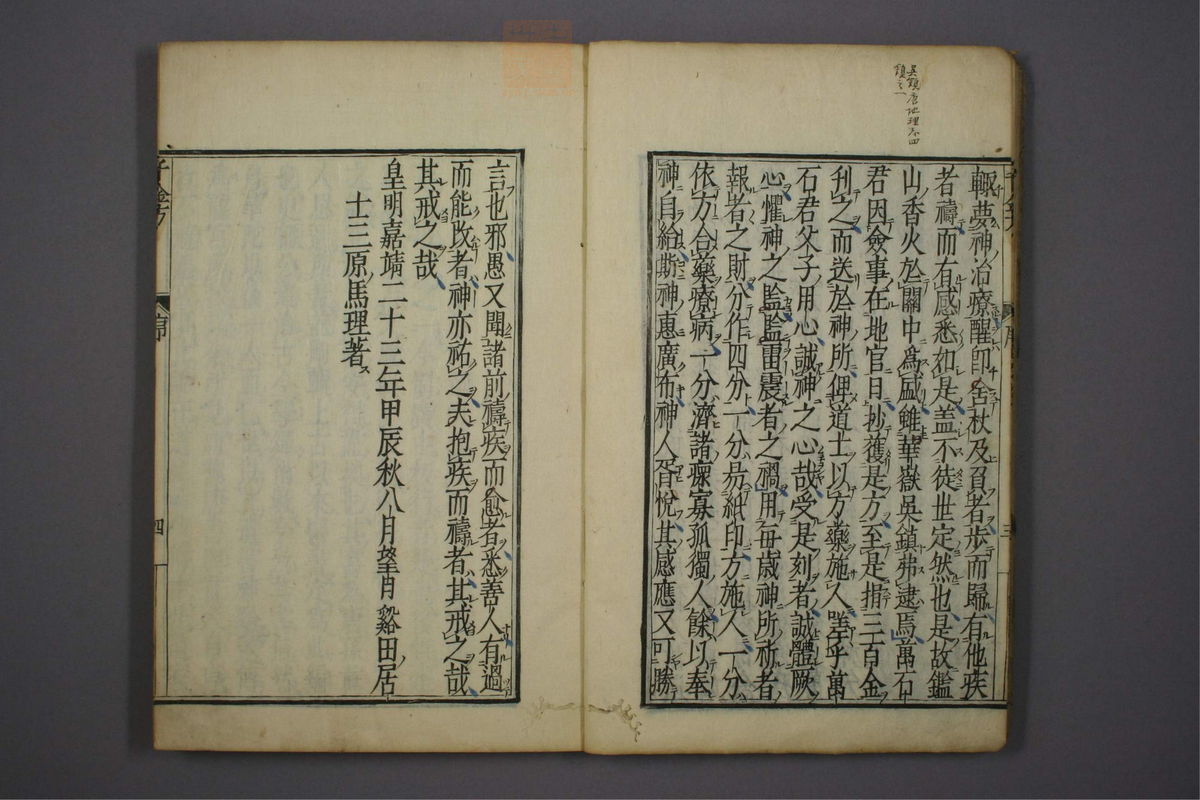 吳鎮唐地理志四
鎮之一
輙夢神治療醒即舍杖及肩者歩而歸有他疾
者禱而有感悉如是盖不徒世定然也是故鑑
山香火於關中爲盛雖華嶽吳鎮弗逮焉萬石
君因僉事在地官日抄獲是方至是捐三百金
刋之而送於神所俾道士以方藥施人嗟乎萬
石君父子用心誠神之心哉受是刻者誠體厥
心懼神之監監雷震者之禍用毎歳神所祈者
報者之財分作四分一分易紙印方施人一分
依方合藥療病一分濟諸瘝寡孤獨人餘以奉
神自給斯神惠廣布神人胥悅其感應又可勝
序
三
言也邪愚又聞諸前禱疾而愈者悉善人有過
而能改者神亦祐之夫抱疾而禱者其戒之哉
其戒之哉
皇明嘉靖二十三年甲辰秋八月望日谿田居
士三原馬理著
千金方
序
四